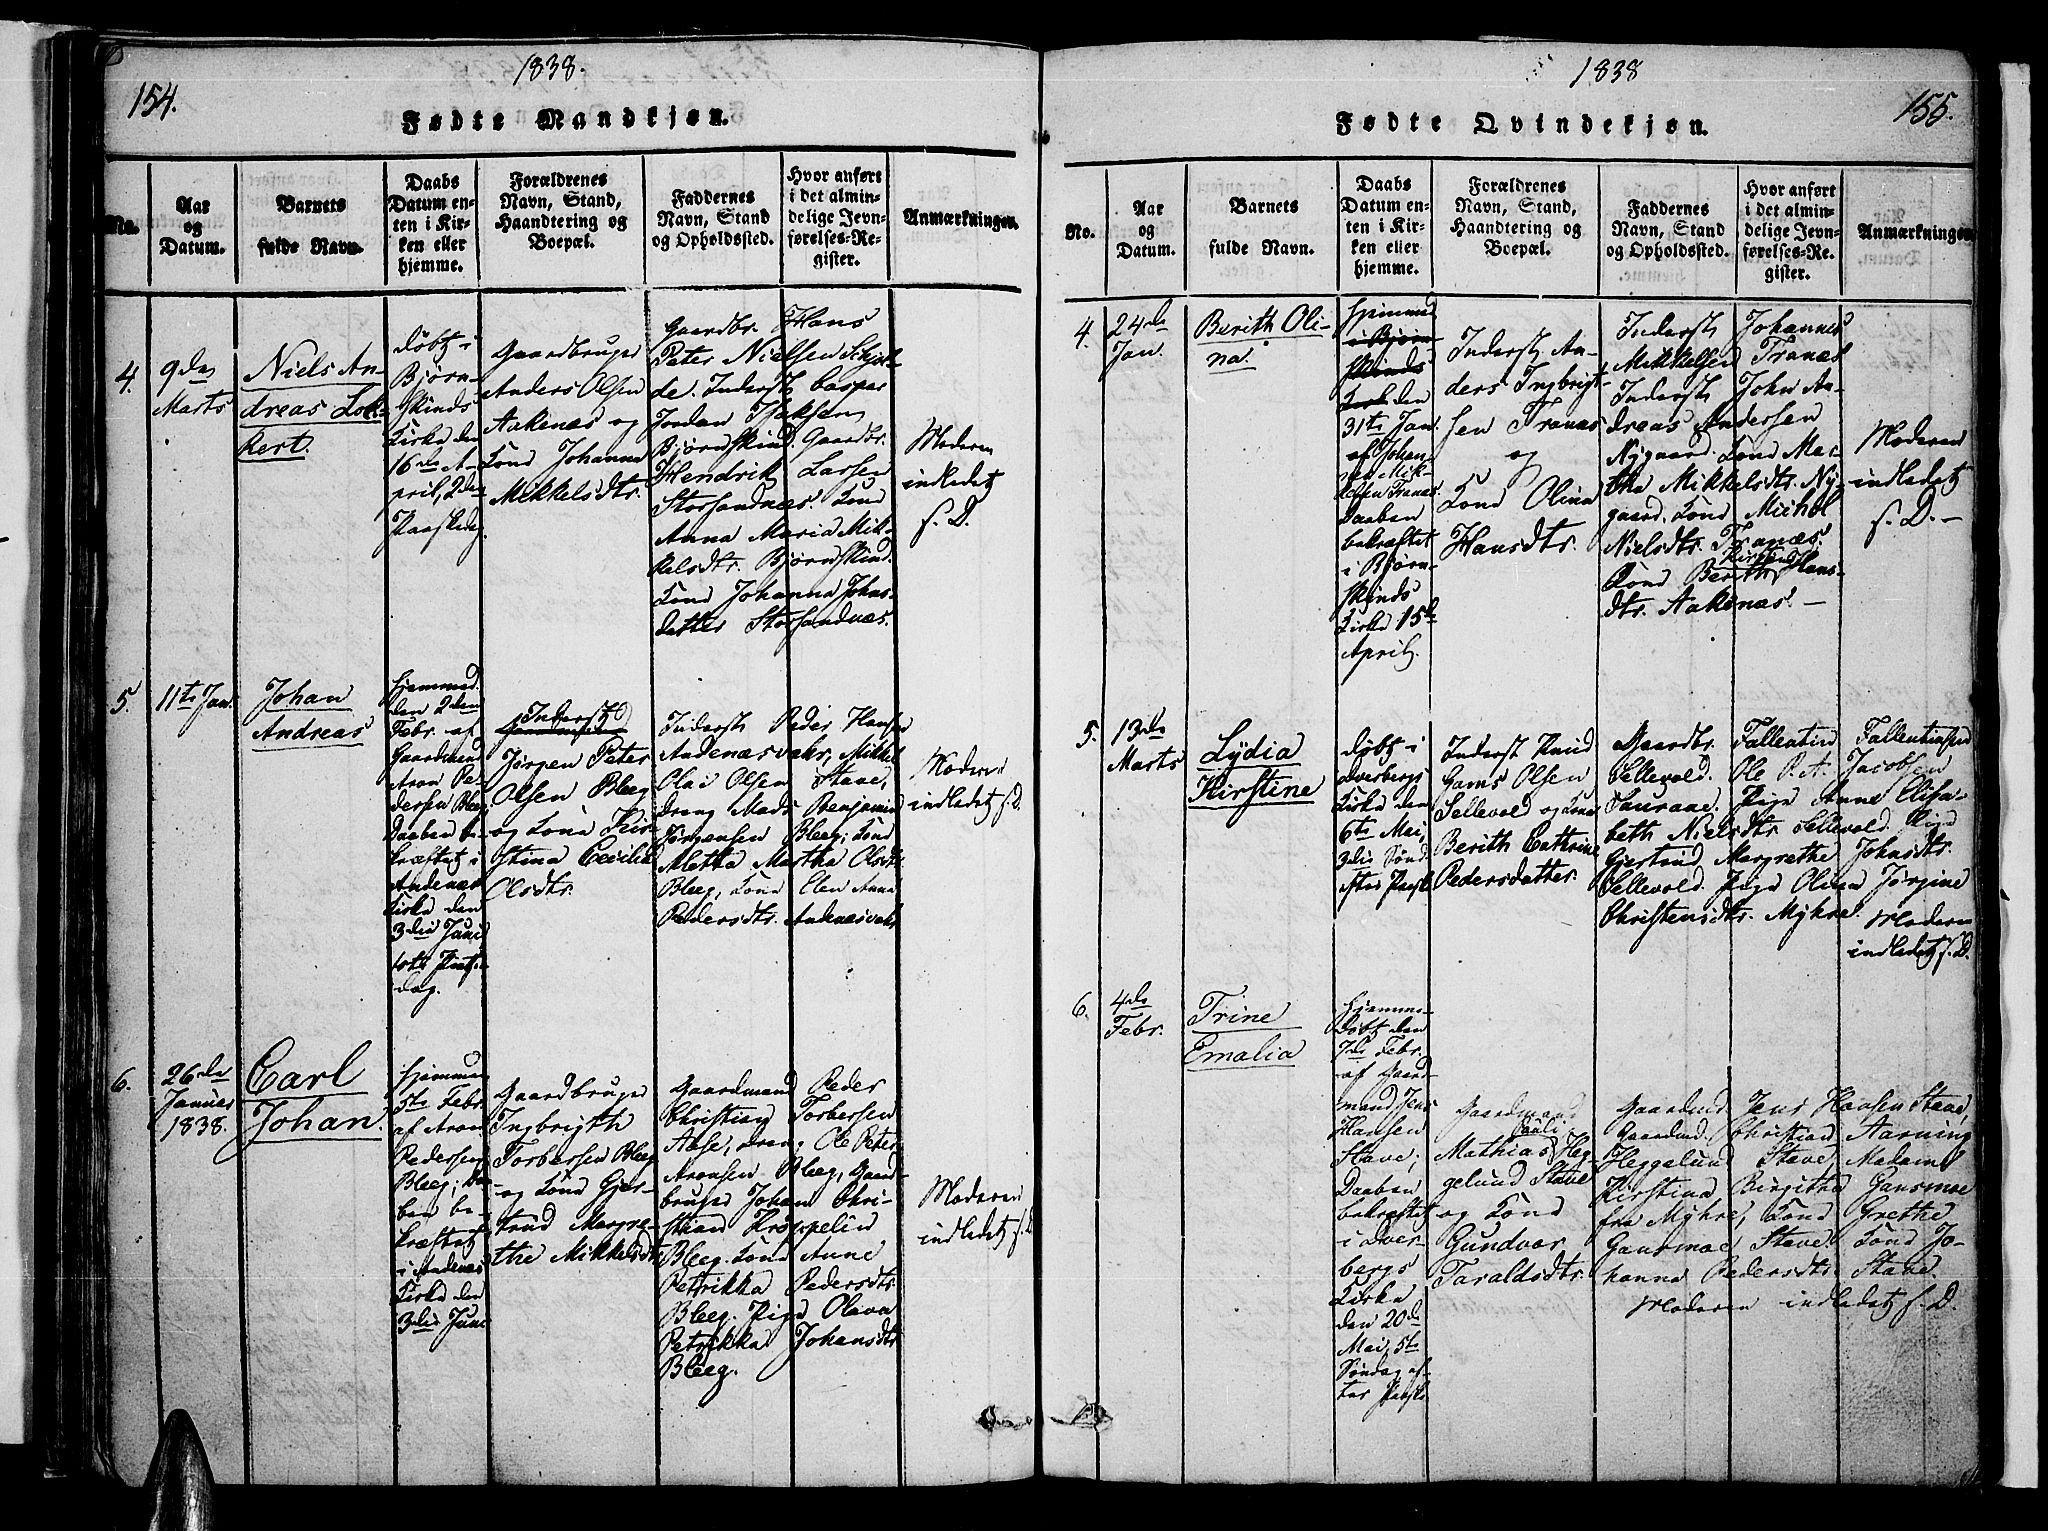 154.
1838.
Fødte Mandkjøn.
No.
Aar
og
Datum.
Barnets
fulde Navn.
Daabs
Datum en-
ten i Kir-
ken eller
hjemme.
Forældrenes
Navn, Stand,
Haandtering og
Boepæl.
Faddernes
Navn, Stand
og Opholdssted.
Hvor anført
i det almin-
delige Jevn-
førelses-Re-
gister.
Anmærkninger.
4.
9de
Marts
Niels An-
dreas Lok-
kert.
døbt i
Bjørn-
skinds
Kirke den
16de A-
pril, 2den
Paaskedg.
Gaardbruger
Anders Olsen
Aakenæs og
Kone Johanna
Mikkelsdtr.
Gaardbr. Hans
Peter Nielsen
de. Inderst Casper
Jordan
Bjørnskind. Gaardbr.
Hendrik Larsen
Storsandnæs. Kone
Anna Maria Mik-
kelsdtr. Bjørnskind.
Kone Johanna Johns-
datter Storsandnæs.
Moderen
indledet
s. D.
5.
11te Jan.
Johan
Andreas
hjemmed.
den 2den
Febr. af
Aron Pe-
dersen Bleeg
Daaben be-
kræftet i
Andenæs
Kirke den
3die Juni
1ste Pints-
dag.
Inderst
Jørgen Peter
Olsen Bleeg
og Kone Kir-
stina Cecilia
Olsdtr.
Inderst Peder Hansen
Andenæsvahr, Mikkel
Olai Olsen Stave,
dreng Mads Benjamin
Jørgensen Bleeg; Kone
Aletha Martha Olsdtr.
Bleeg, Kone Elen Anna
Pedersdtr. Andenæsvahr
Moderen
indledet s. D.
6.
26de
Januar
1838.
Carl
Johan.
hjemme
5te Febr.
af Aron
Pedersen
Bleeg; Daa-
ben be-
kræftet
i Andenæs
Kirke den
3die Juni
Gaardbruger
Ingbrigth
Torbersen Bleeg
og Kone Gjer-
trud Margre-
the Mikkelsdtr.
Gaardmand Peder
Christian Torbersen
Aase, dreng Ole Peter
Aronsen Bleeg, Gaard-
bruger Johan Chri-
stian Kroppelin
Bleeg. Kone Anne
Petrikka Pedersdtr.
Bleeg. Pige Olava
Petrikka Johansdtr.
Bleeg.
Moderen
indledet s. D.
1838
155.
Fødte Qvindekjøn.
No.
Aar
og
Datum.
Barnets
fulde Navn.
Daabs
Datum en-
ten i Kir-
ken eller
hjemme.
Forældrenes
Navn, Stand,
Haandtering og
Boepæl.
Faddernes
Navn, Stand
og Opholdssted.
Hvor anført
i det almin-
delige Jevn-
førelses-Re-
gister.
Anmærkninger.
4.
24de
Jan.
Berith Oli-
na.
hjemmed
i Bjørn-
skinds
Kirke den
31te Jan.
af Johan-
nes Mik-
kelsen Tranæs.
Daaben
bekræftet
i Bjørn-
skinds
Kirke 15de
April.
Inderst An-
ders Ingbrigt-
sen Tranæs
og
Kone Olina
Hansdtr.
Inderst Johannes
Mikkelsen Tranæs
Inderst John An-
dreas Andersen
Nygaard. Kone Mar-
tha Mikkelsdtr. Ny-
gaard. Kone Michol
Nielsdtr. Tranæs.
Kirstine
Kone Berith Hans-
dtr. Aakenæs.
Moderen
indledet
s. D.
5.
13de
Marts
Lydia
Kirstine
døbt i
dverbergs
Kirke den
6te Mai,
3die Sønd.
efter Paaske
Inderst Knud
Olsen
Sellevold og Kone
Berith Cathrine
Pedersdatter.
Gaardbr. Fallentin Fallentinsen
Sellevold. Ole P. A. Jacobsen
Saurane. Pige Anne Elisa-
beth Nielsdtr. Sellevold. Pige
Gjertrud Margrethe Johnsdtr.
Sellevold. Pige Olina Jørgine
Christensdtr. Myhre.
Moderen
indledet s. D.
6.
4de
Febr.
Trine
Emalia
hjemme-
døbt den
7de Febr.
af Gaard-
mand Jens
Hansen
Stave;
Daaben
bekræftet
i dver-
bergs
Kirke
den 20de
Mai, 5te
Søndag ef-
ter Paaske
Gaardmand
Pauli
Mathias Heg-
gelund Stave
og Kone
Gundvor
Taraldsdtr.
Gaardmd. Jens Hansen Stave,
Gaardmd. Christian Aarning
Heggelund Stave, Madame
Kirstina Birgitha Jansmoe
fra Myhre, Kone Grethe
Gansmoe Stave. Kone Jo-
hanna Pedersdtr. Stave.
Moderen indledet s. D.